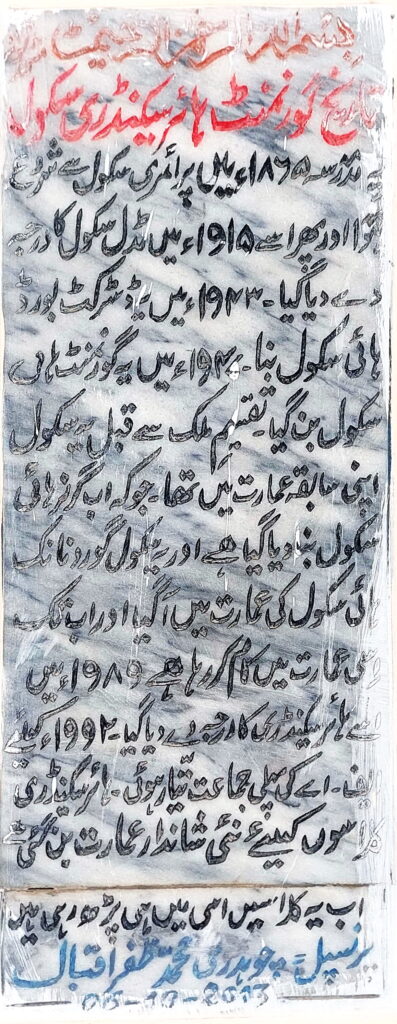 بسم اللہ الرحمٰن الرحیم
تاریخ گورنمنٹ ہائر سیکنڈری سکول
یہ مدرسہ ۱۸۶۵ء میں پرائمری سکول سے شروع
ہوا اور پھر اسے ۱۹۱۵ء میں مڈل سکول کا درجہ
دے دیا گیا۔ ۱۹۲۳ء میں یہ ڈسٹرکٹ بورڈ
ہائی سکول بنا۔ ۱۹۴۰ء میں یہ گورنمنٹ ہائی
سکول بن گیا۔ تقسیم ملک سے قبل یہ سکول
اپنی سابقہ عمارت میں تھا۔ جو کہ اب گرلز ہائی
سکول بنا دیا گیا ہے اور یہ سکول گورو نانک
ہائی سکول کی عمارت میں آ گیا اور اب تک
اسی عمارت میں کام کر رہا ہے ۱۹۸۹ء میں
اسے ہائر سیکنڈری کا درجہ دے دیا گیا۔ ۱۹۹۲ء کیلئے
ایف۔اے کی پہلی جماعت تیار ہوئی۔ ہائر سیکنڈری
کلاسوں کیلئے نئی شاندار عمارت بن گئی ہے
اب یہ کلاسیں اسی میں ہی پڑھ رہی ہیں
پرنسپل = چوہدری محمد ظفر اقبال
05-10-2013